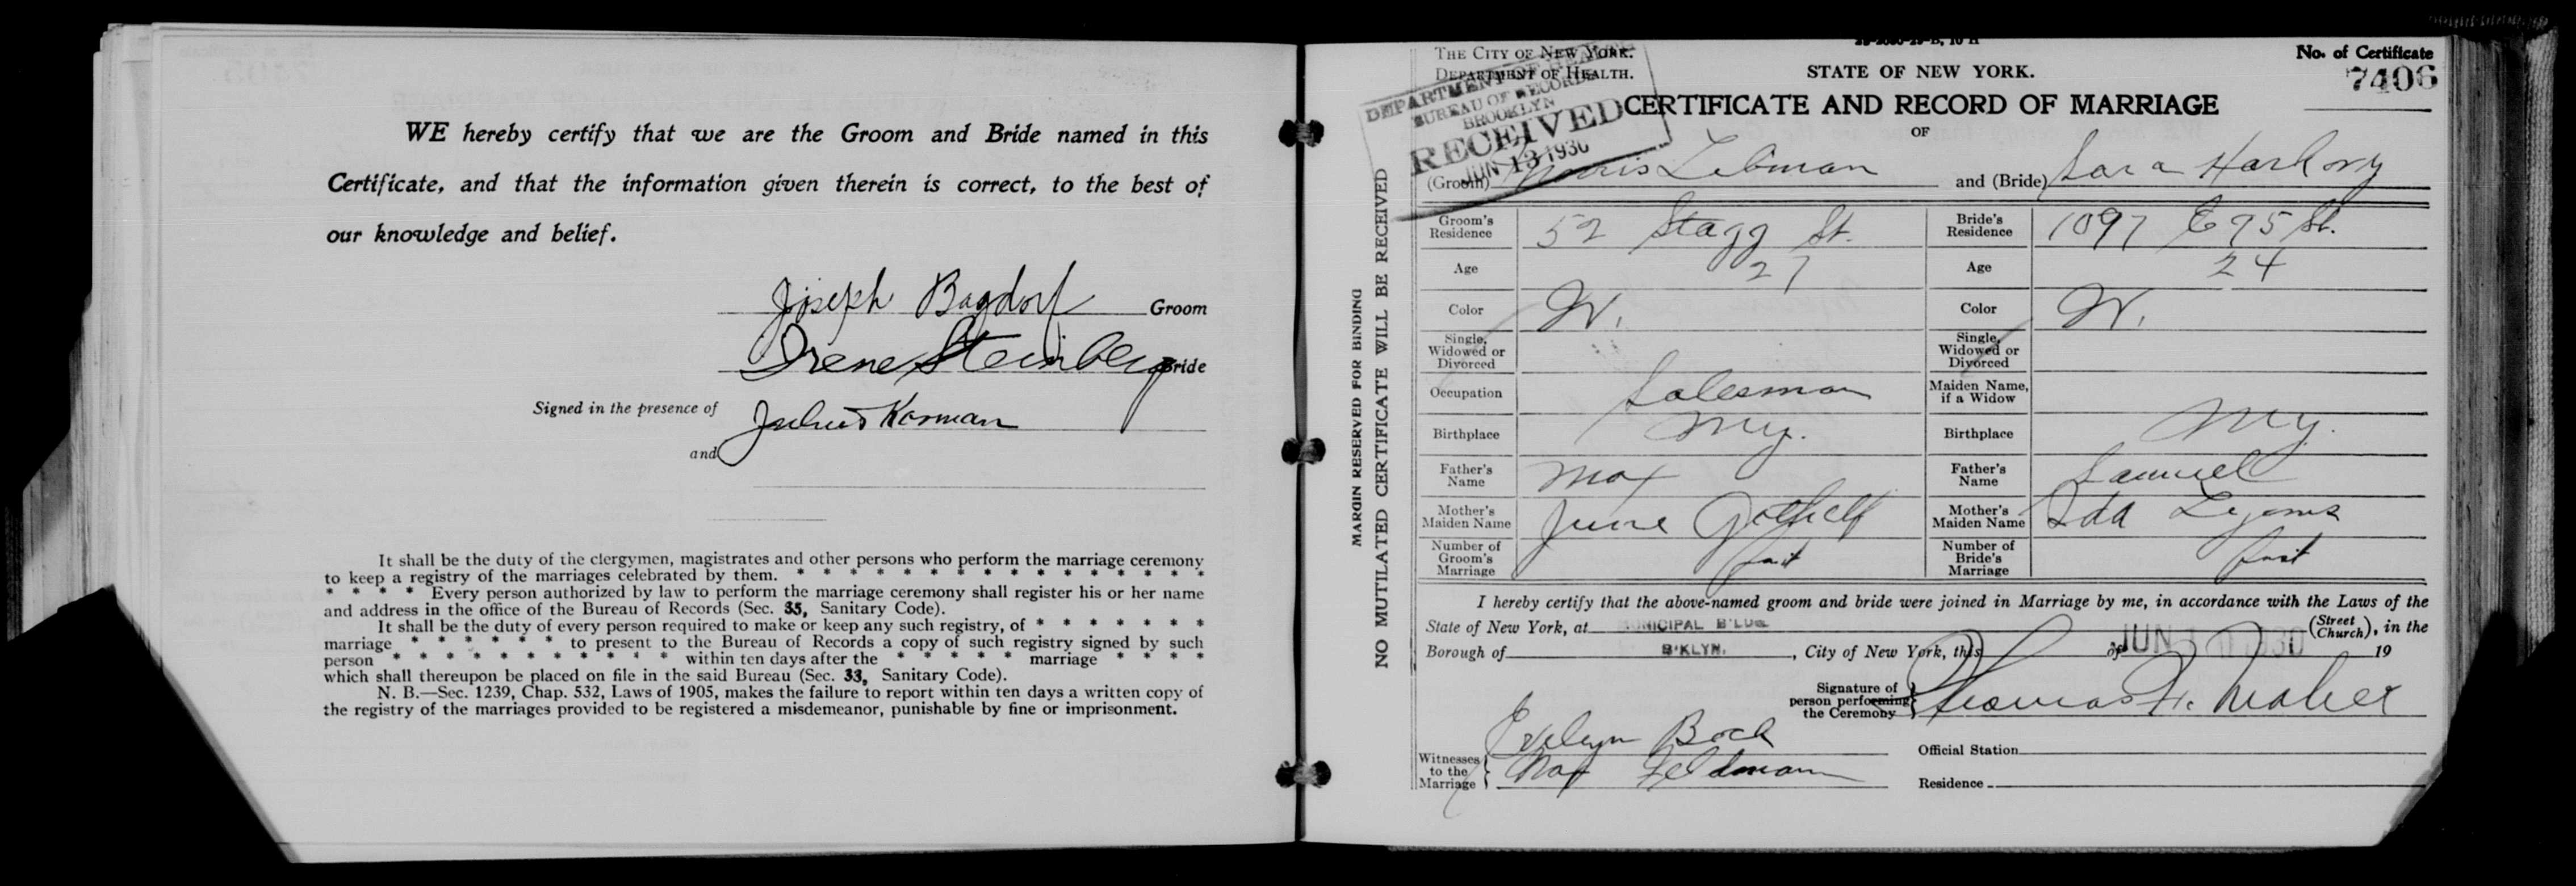 WE hereby certify that we are the Groom and Bride named in this
Certificate, and that the information given therein is correct, to the best of
our knowledge and belief.
Joseph Bagdorf Groom
Irene Steinberg Bride
Signed in the presence of Julius Korman
and
It shall be the duty of the clergymen, magistrates and other persons who perform the marriage ceremony
to keep a registry of the marriages celebrated by them. * * * * * * * * * * * * * * * *
* * * * Every person authorized by law to perform the marriage ceremony shall register his or her name
and address in the office of the Bureau of Records (Sec. 35, Sanitary Code).
It shall be the duty of every person required to make or keep any such registry, of * * * * * * *
marriage * * * * * * to present to the Bureau of Records a copy of such registry signed by such
person * * * * * * * * * * * within ten days after the * * * * * marriage * * * *
which shall thereupon be placed on file in the said Bureau (Sec. 33, Sanitary Code).
N. B.—Sec. 1239, Chap. 532, Laws of 1905, makes the failure to report within ten days a written copy of
the registry of the marriages provided to be registered a misdemeanor, punishable by fine or imprisonment.
MARGIN RESERVED FOR BINDING
NO MUTILATED CERTIFICATE WILL BE RECEIVED
THE CITY OF NEW YORK.
DEPARTMENT OF HEALTH.
DEPARTMENT OF HEALTH
BUREAU OF RECORDS
BROOKLYN
RECEIVED
JUN 13 1930
No. of Certificate
7406
STATE OF NEW YORK.
CERTIFICATE AND RECORD OF MARRIAGE
OF
(Groom) Morris Lebman and (Bride) Sara Harkavy
Groom's Residence 52 Stagg St. Bride's Residence 1097 E 95 St.
Age 27 Age 24
Color W. Color W.
Single, Widowed or Divorced Single, Widowed or Divorced
Occupation Salesman Maiden Name, if a Widow
Birthplace NY. Birthplace NY.
Father's Name Max Father's Name Samuel
Mother's Maiden Name June Mother's Maiden Name Ida
Number of Groom's Marriage first Number of Bride's Marriage first
I hereby certify that the above-named groom and bride were joined in Marriage by me, in accordance with the Laws of the
State of New York, at MUNICIPAL B'LDG. (Street Church), in the
Borough of B'KLYN. , City of New York, this of JUN 1930 19
Signature of person performing the Ceremony Thomas F. Maher
Evelyn Bock
Witnesses to the Marriage Max Feldman
Official Station
Residence